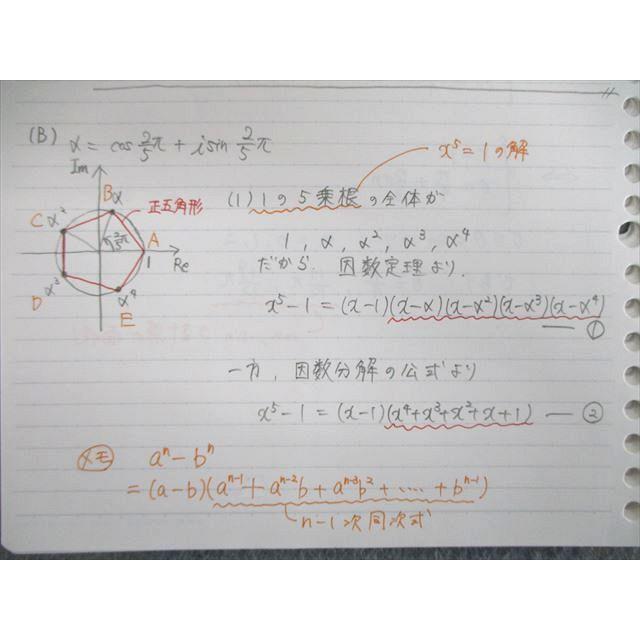 (B) α = cos 2/5 π + i sin 2/5 π
x⁵ = 1 の解
Im
B α
正五角形
C α²
2/5 π
A
1
Re
D α³
α⁴
E
(1) 1 の 5 乗根 の全体が
1, α, α², α³, α⁴
だから, 因数定理より,
x⁵ - 1 = (x-1)(x-α)(x-α²)(x-α³)(x-α⁴)
— ①
一方, 因数分解の公式より
x⁵ - 1 = (x-1)(x⁴+x³+x²+x+1) — ②
メモ aⁿ - bⁿ
= (a-b)(aⁿ⁻¹ + aⁿ⁻²b + aⁿ⁻³b² + ‥‥ + bⁿ⁻¹)
n-1次同次式